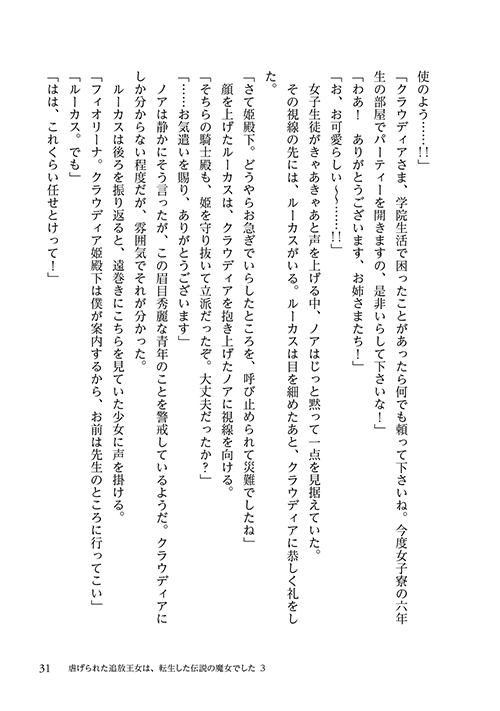 使のよう……!!」
「クラウディアさま、学院生活で困ったことがあったら何でも頼って下さいね。今度女子寮の六年
生の部屋でパーティーを開きますの、是非いらして下さいな！」
「わあ！　ありがとうございます、お姉さまたち！」
「お、お可愛らしい～～……!!」
女子生徒がきゃあきゃあと声を上げる中、ノアはじっと黙って一点を見据えていた。
その視線の先には、ルーカスがいる。ルーカスは目を細めたあと、クラウディアに恭しく礼をし
た。
「さて姫殿下。どうやらお急ぎでいらしたところを、呼び止められて災難でしたね」
顔を上げたルーカスは、クラウディアを抱き上げたノアに視線を向ける。
「そちらの騎士殿も、姫を守り抜いて立派だったぞ。大丈夫だったか？」
「……お気遣いを賜り、ありがとうございます」
ノアは静かにそう言ったが、この眉目秀麗な青年のことを警戒しているようだ。クラウディアに
しか分からない程度だが、雰囲気でそれが分かった。
ルーカスは後ろを振り返ると、遠巻きにこちらを見ていた少女に声を掛ける。
「フィオリーナ。クラウディア姫殿下は僕が案内するから、お前は先生のところに行ってこい」
「ルーカス。でも」
「はは、これくらい任せとけって！」
31　虐げられた追放王女は、転生した伝説の魔女でした 3